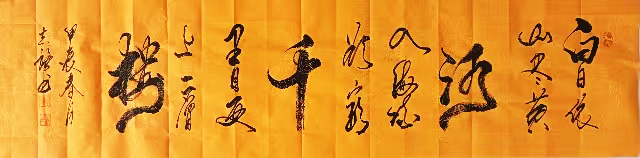 白日依
山尽黄
河
入海流
欲窮
千
里目更
上一層
楼
甲辰春月
志